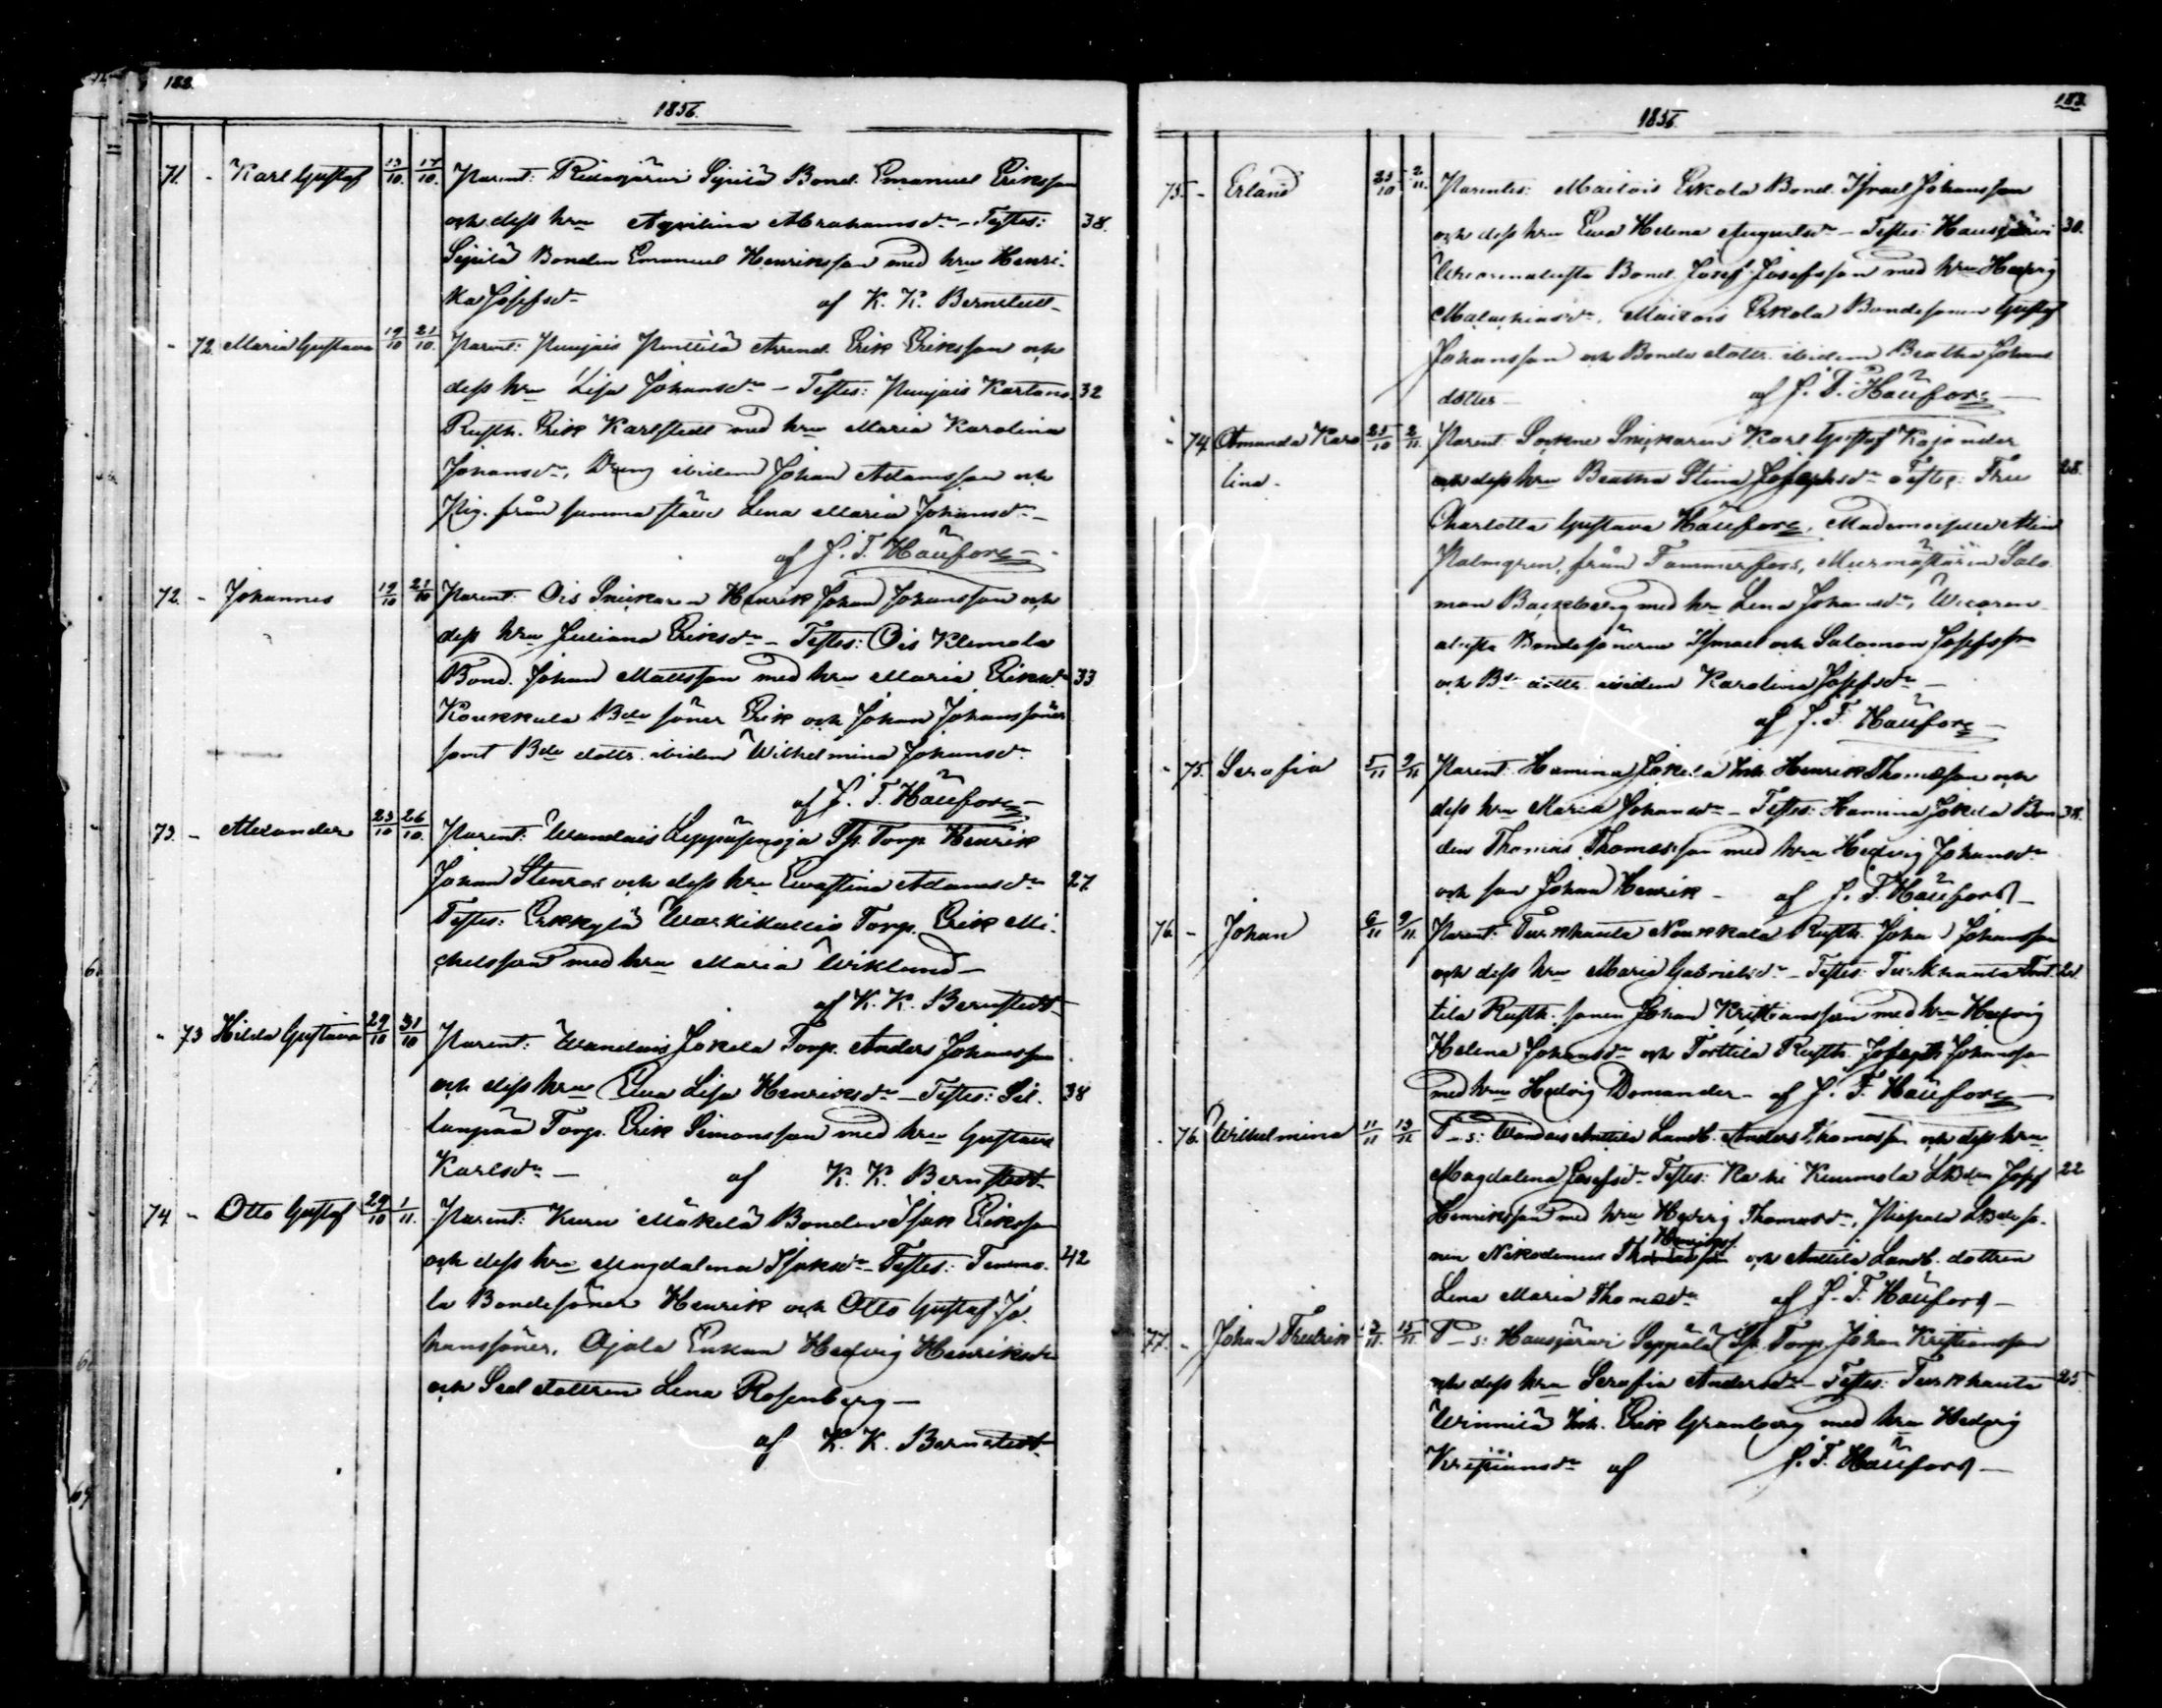 182.
1856.
71. - Karl Gustaf 13/10. 17/10. Parent: Ridasjärvi Sipilä Bond. Emanuel Eriksson
och dess hru Aqvilina Abrahamsdr - Testes: 38.
Sipilä Bonden Emanuel Henriksson med hru Henri-
ka Josefsdr af K. K. Bernstedt-
- 72. Maria Gustava 19/10 21/10. Parent: Puujais Penttilä Arrend. Erik Eriksson och
dess hru Lisa Johansdr - Testes: Puujais Kartano 32
Rusth. Erik Karlstedt med hru Maria Karolina
Johansdr, Dreng ibidem Johan Adamsson och
Pig. från samma ställe Lena Maria Johansdr -
af J. F. Haufors -
72. - Johannes 19/10 21/10 Parent: Ois Snickaren Henrik Johan Johansson och
dess hru Juliana Eriksdr - Testes: Ois Klemola
Bond. Johan Mattsson med hru Maria Eriksdr 33
Koukkula Bde söner Erik och Johan Johanssöner
samt Bde dottr. ibidem Wilhelmina Johansdr
af J. F. Haufors -
73. - Alexander 23/10 26/10. Parent: Wandais Sp. Torp. Henrik
Johan Stenros och dess hru Ewastina Adamsdr 27
Testes: Erkkylä Torp. Erik Mi-
chelsson med hru Maria Wiklund -
af K. K. Bernstedt-
- 73 Hilda Gustava 29/10 31/10 Parent: Wandais Jokela Torp. Anders Johansson
och dess hru Eva Lisa Henriksdr - Testes: Sil- 38
lanpää Torp. Erik Simonsson med hru Gustava
Karlsdr - af K. K. Bernstedt-
74 - Otto Gustaf 29/10 1/11. Parent: Kuru Mäkelä Bonden Isak Eriksson
och dess hru Magdalena Isaksdr - Testes: Temmo- 42
la Bondesöner Henrik och Otto Gustaf Jo-
hanssöner, Ojala Enkan Hedvig Henriksdr
och Sceldottren Lena Rosenberg -
af K. K. Bernstedt-
183.
1856.
75. - Erland 23/10 2/11. Parentes: Maitois Erkola Bond. Israel Johansson
och dess hru Ewa Helena Augustsdr - Testes: Hausjärvi 30.
Bond. Josef Josefsson med hru Hedvig
Malachiasdr, Maitois Erkola Bondesonen Gustaf
Johansson och Bonde dottr. ibidem Beatha Johans
dotter - af J. F. Haufors -
- 74. Amanda Karo 23/10 2/11. Parent: Sockne Snickaren Karl Gustaf Kajander
lina - och dess hru Beatha Stina Josephsdr Testes: Fru 28.
Charlotta Gustava Haufors, Mademoiselle Alin
Palmgren, från Tammerfors, Murmästaren Salo-
mon Backberg med hr Lena Johansdr,
Bondesönerne Ismael och Salomon Josefsson
och Bde dottr. ibidem Karolina Josefsdr -
af J. F. Haufors -
- 75. Serafia 5/11 9/11 Parent: Hamina Jokela Inh. Henrik Thomasson och
dess hru Maria Johansdr - Testes: Hamina Jokela Bon 38.
den Thomas Thomasson med hru Hedvig Johansdr
och son Johan Henrik - af J. F. Haufors -
76. - Johan 6/11 9/11. Parent: Turkhauta Noukkala Rusth. Johan Johansson
och dess hru Maria Gabrielsdr - Testes: Turkhauta Tort 21.
tila Rusth. sonen Johan Kristiansson med hru Hedvig
Helena Johansdr och Torttila Rusth. Joseph Johansson
med hru Hedvig Domander - af J. F. Haufors -
- 76. Wilhelmina 11/11 13/11. P-s: Wandais Anttila Landb. Anders Thomasson och dess hru
Magdalena Josefsdr Testes: Karhi Keummola LBden Josef 22
Henriksson med hru Hedvig Thomasdr, LBde so-
nen Nikodemus Henrikss. och Anttila Landb. dottren
Lena Maria Thomasdr af J. F. Haufors -
77. - Johan Fredrik 13/11. 15/11. P-s: Hausjärvi Seppälä Sp. Torp. Johan Kristiansson
och dess hru Serafia Andersdr - Testes: Turkhauta 25.
Winnilä Inh. Erik Granberg med hru Hedvig
Kristiansdr af J. F. Haufors -